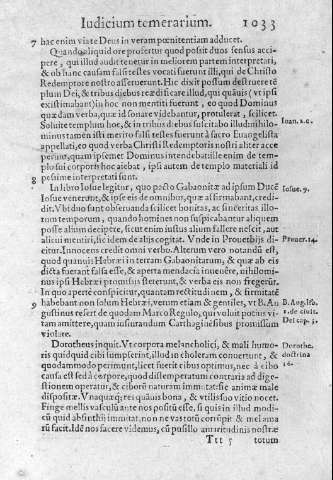 Iudicium temerarium. 1033
7 hac enim via te Deus in veram pœnitentiam adducet.
Quando aliquid ore profertur quod possit duos sensus acci-
pere, qui illud audit tenetur in meliorem partem interpretari,
& ob hanc causam falsi testes vocati fuerunt illi, qui de Christo
Redemptore nostro asseruerunt. Hic dixit possum destruere tē
plum Dei, & tribus diebus reædificare illud, qui quāuis (vt ipsi
existimabant) in hoc non mentiti fuerunt, eo quod Dominus
quædam verba, quæ id sonare videbantur, protulerat, scilicet.
Soluite templum hoc, & in tribus diebus suscitabo illud: nihilo-
minus tamen isti merito falsi testes fuerunt à sacro Euangelista
appellati, eo quod verba Christi Redemptoris nostri aliter acce
perint, quam ipsemet Dominus intendebat: ille enim de tem-
plo sui corporis hoc aiebat, ipsi autem de templo materiali id
pessime interpretati sunt.
Ioan. 2. c.
8 In libro Iosue legitur, quo pacto Gabaonitæ ad ipsum Ducē
Iosue venerūt, & ipse eis de omnibus, quæ affirmabant, credi-
dit. Vbi duo sunt obseruanda scilicet bonitas, ac sinceritas illo-
rum temporum, quando homines non suspicabantur aliquem
posse alium decipere, sicut enim iustus alium fallere nescit, aut
alicui mentiri, sic idem de alijs cogitat. Vnde in Prouerbijs di-
citur. Innocens credit omni verbo. Alterum vero notandū est,
quod quanuis Hebræi in terram Gabaonitarum, & quæ ab eis
dicta fuerant falsa esse, & aperta mendacia inuenére, nihilomi-
nus ipsi Hebræi promissis steterunt, & verba eis non fregerūt.
In quo aperte conspicitur, quantam rectitudinem, & firmitatē
9 habebant non solum Hebræi, verum etiam & gentiles, vt B. Au
gustinus refert de quodam Marco Regulo, qui voluit potius vi-
tam amittere, quam iusiurandum Carthaginēsibus promissum
violare.
Iosue. 9.
Prouer. 14.
B. Aug. lib.
1. de ciuit.
Dei cap. 5.
Dorotheus inquit. Vt corpora melancholici, & mali humo-
ris quidquid cibi sumpserint, illud in choleram conuertunt, &
quodammodo perimunt, licet fuerit cibus optimus, nec à cibo
causa est sed à corpore, quod distemperatum operatur ad dige-
stionem operatur, & ciborū naturam immutet: sic animæ male
dispositæ. Vnaquæq; res quāuis bona, & vtilis suo vitio nocet.
Finge mellis vasculū aute nos positū esse, si quis in illud modi-
cū quid absinthij immittat, non ne vas totū corrūpit & mel ama
rū facit. Idē nos facere videmus, cū pusillo amaritudinis nostræ
Dorothe.
doctrina
16.
Ttt 5 totum